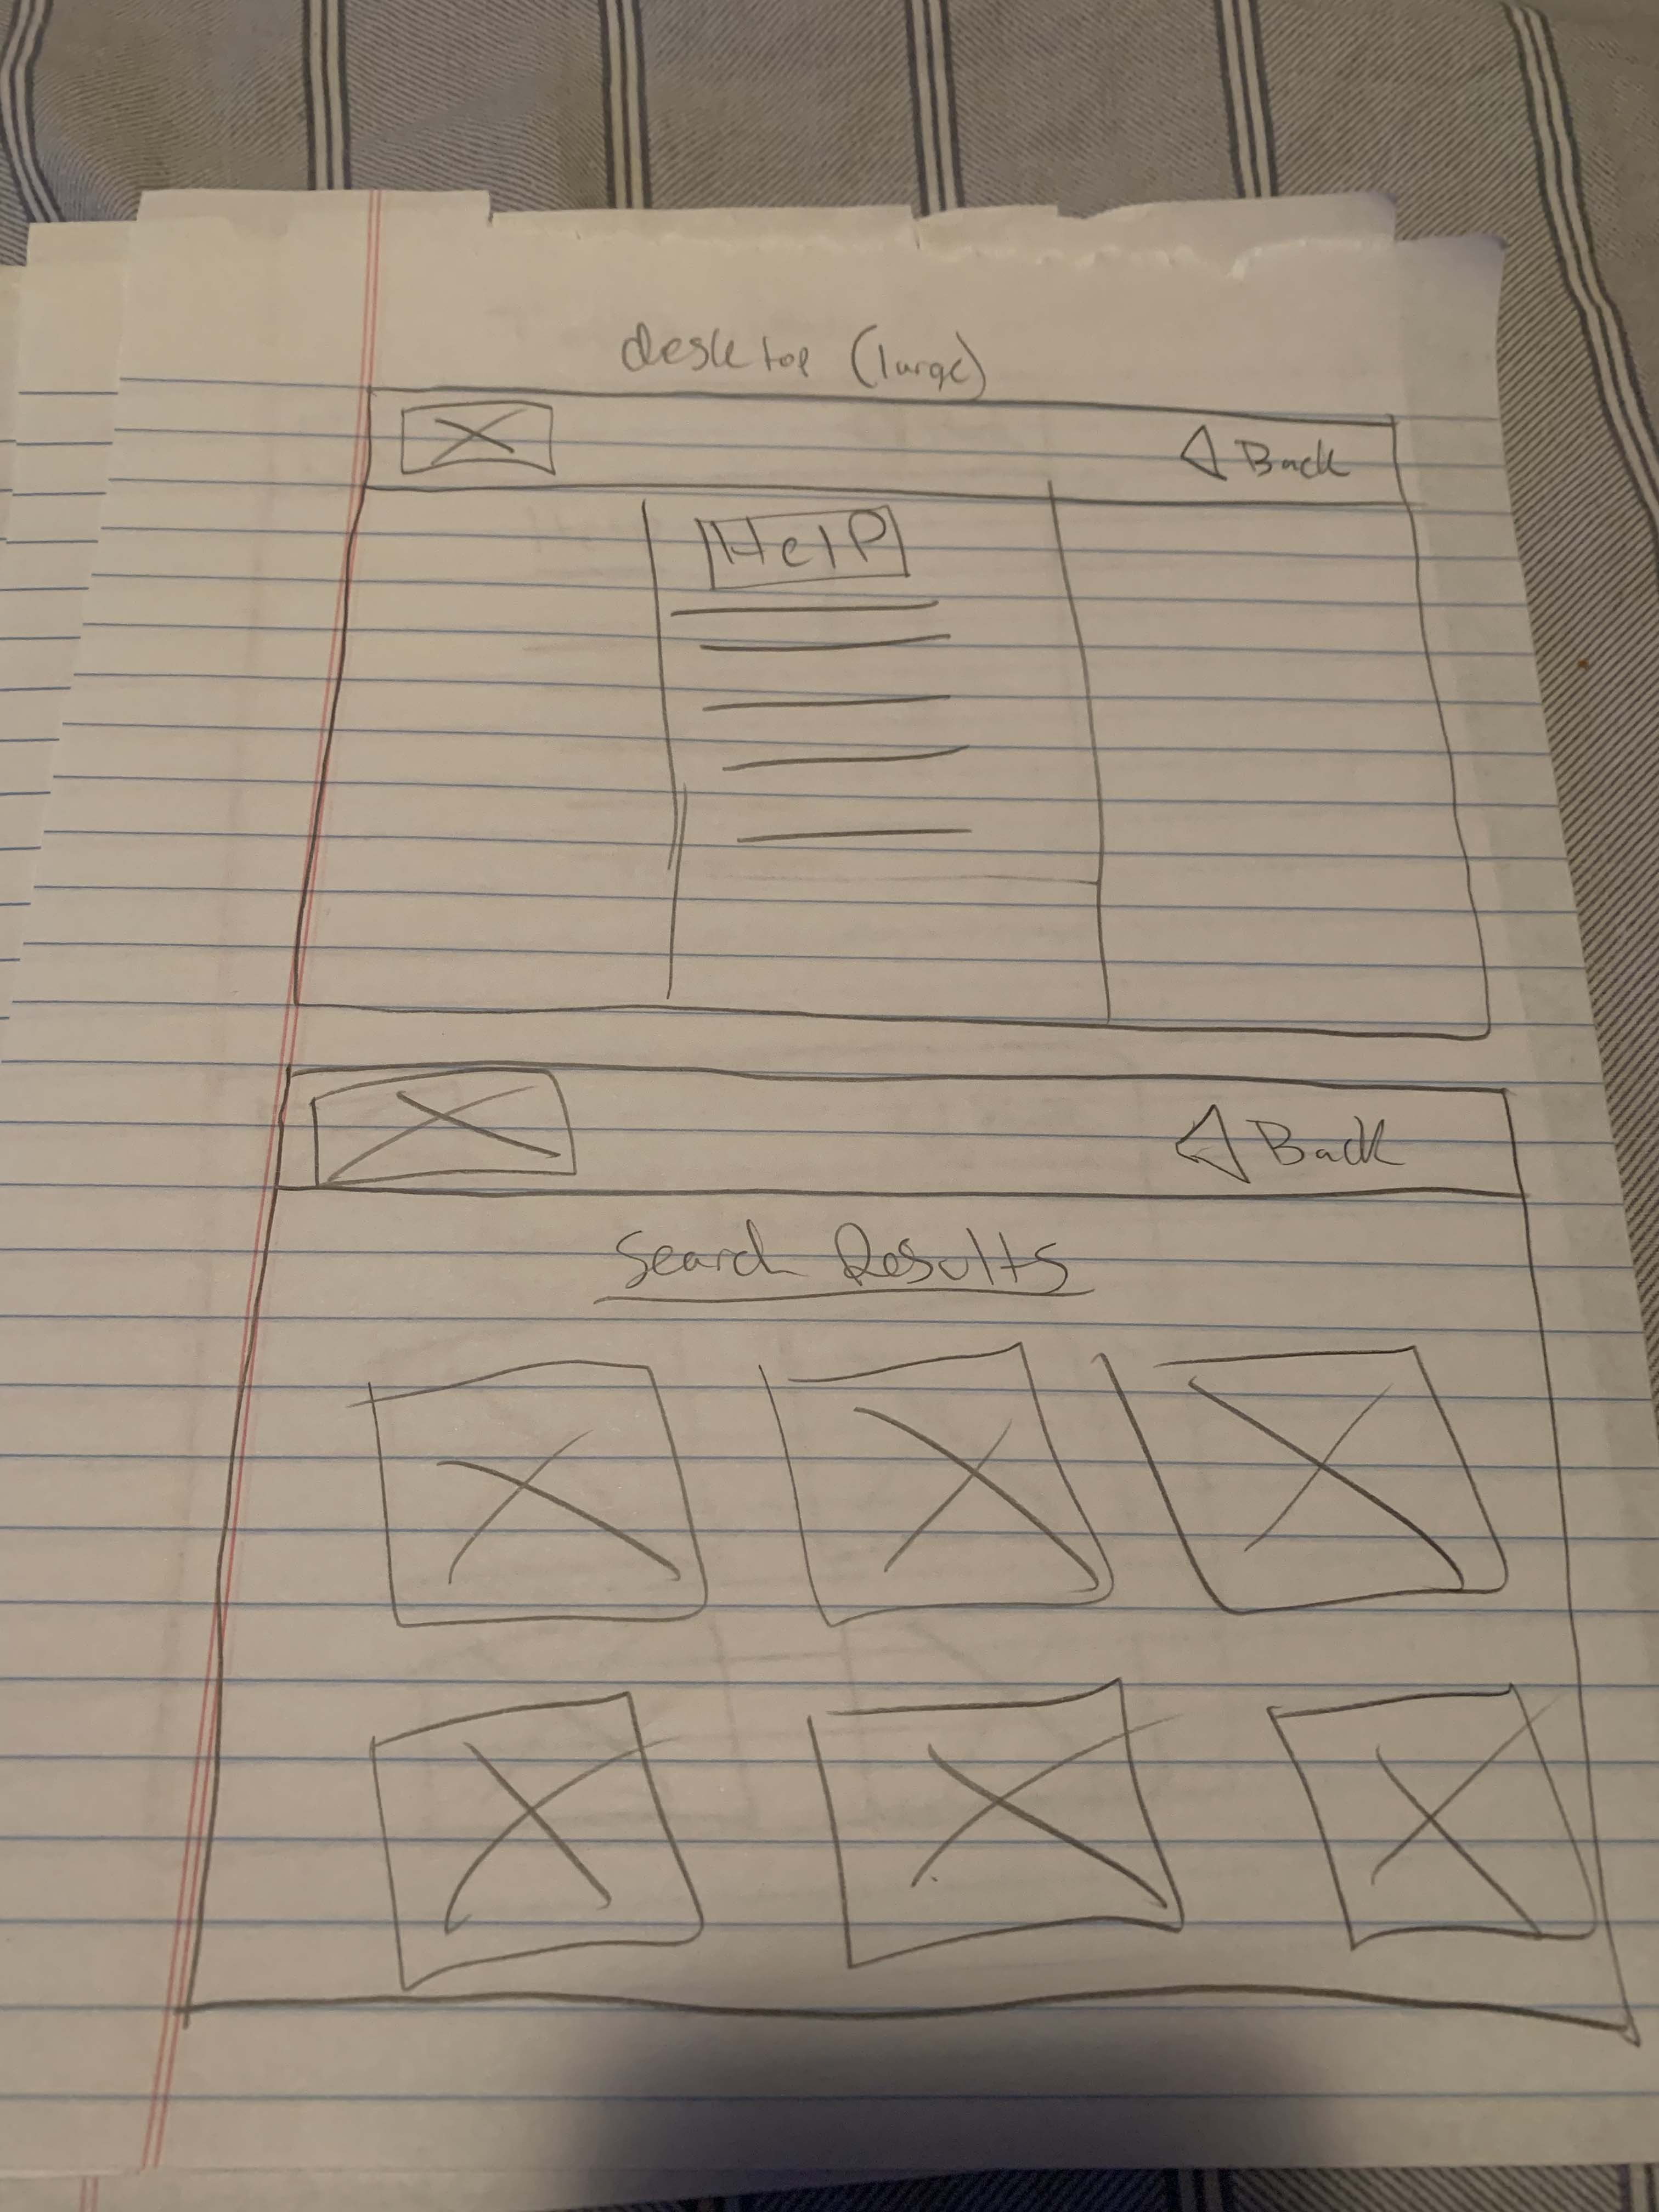 desktop (large)
Back
Help
Back
Search Results